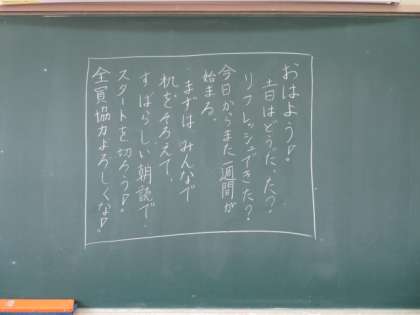 おはよう!
土日はどうだった?
リフレッシュできた?
今日からまた一週間が
始まる。
まずは みんなで
机をそろえて、
すばらしい朝読で
スタートを切ろう!
全員協力よろしくな!